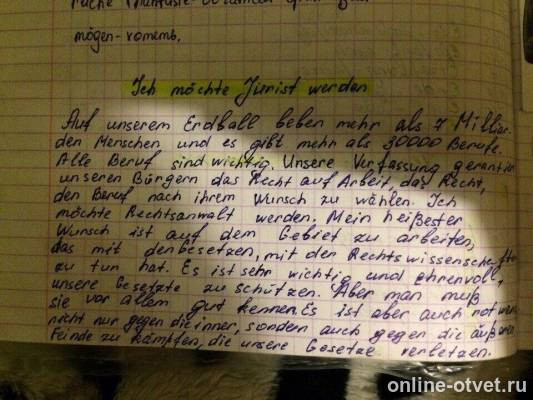 mögen-хотеть,
Ich möchte Jurist werden
Auf unserem Erdball beben mehr als 7 Millior-
den Menschen und es gibt mehr als 30000 Berufe.
Alle Beruf sind wichtig. Unsere Verfassung gerantier
unseren Bürgern das Recht auf Arbeit, das Recht,
den Beruf nach ihrem Wunsch zu wählen. Ich
möchte Rechtsanwalt werden. Mein heißester
Wunsch ist auf dem Gebiet zu arbeiten,
das mit den Gesetzen, mit der Rechtswissenschafte
zu tun hat. Es ist sehr wichtig und ehrenvoll,
unsere Gesetzte zu schützen. Aber man muß
sie vor allem gut kennen. Es ist aber auch notwen
nicht nur gegen die inner, sonden auch gegen die äußeren
Feinde zu kämpfen, die unsere Gesetze verletzen.
online-otvet.ru